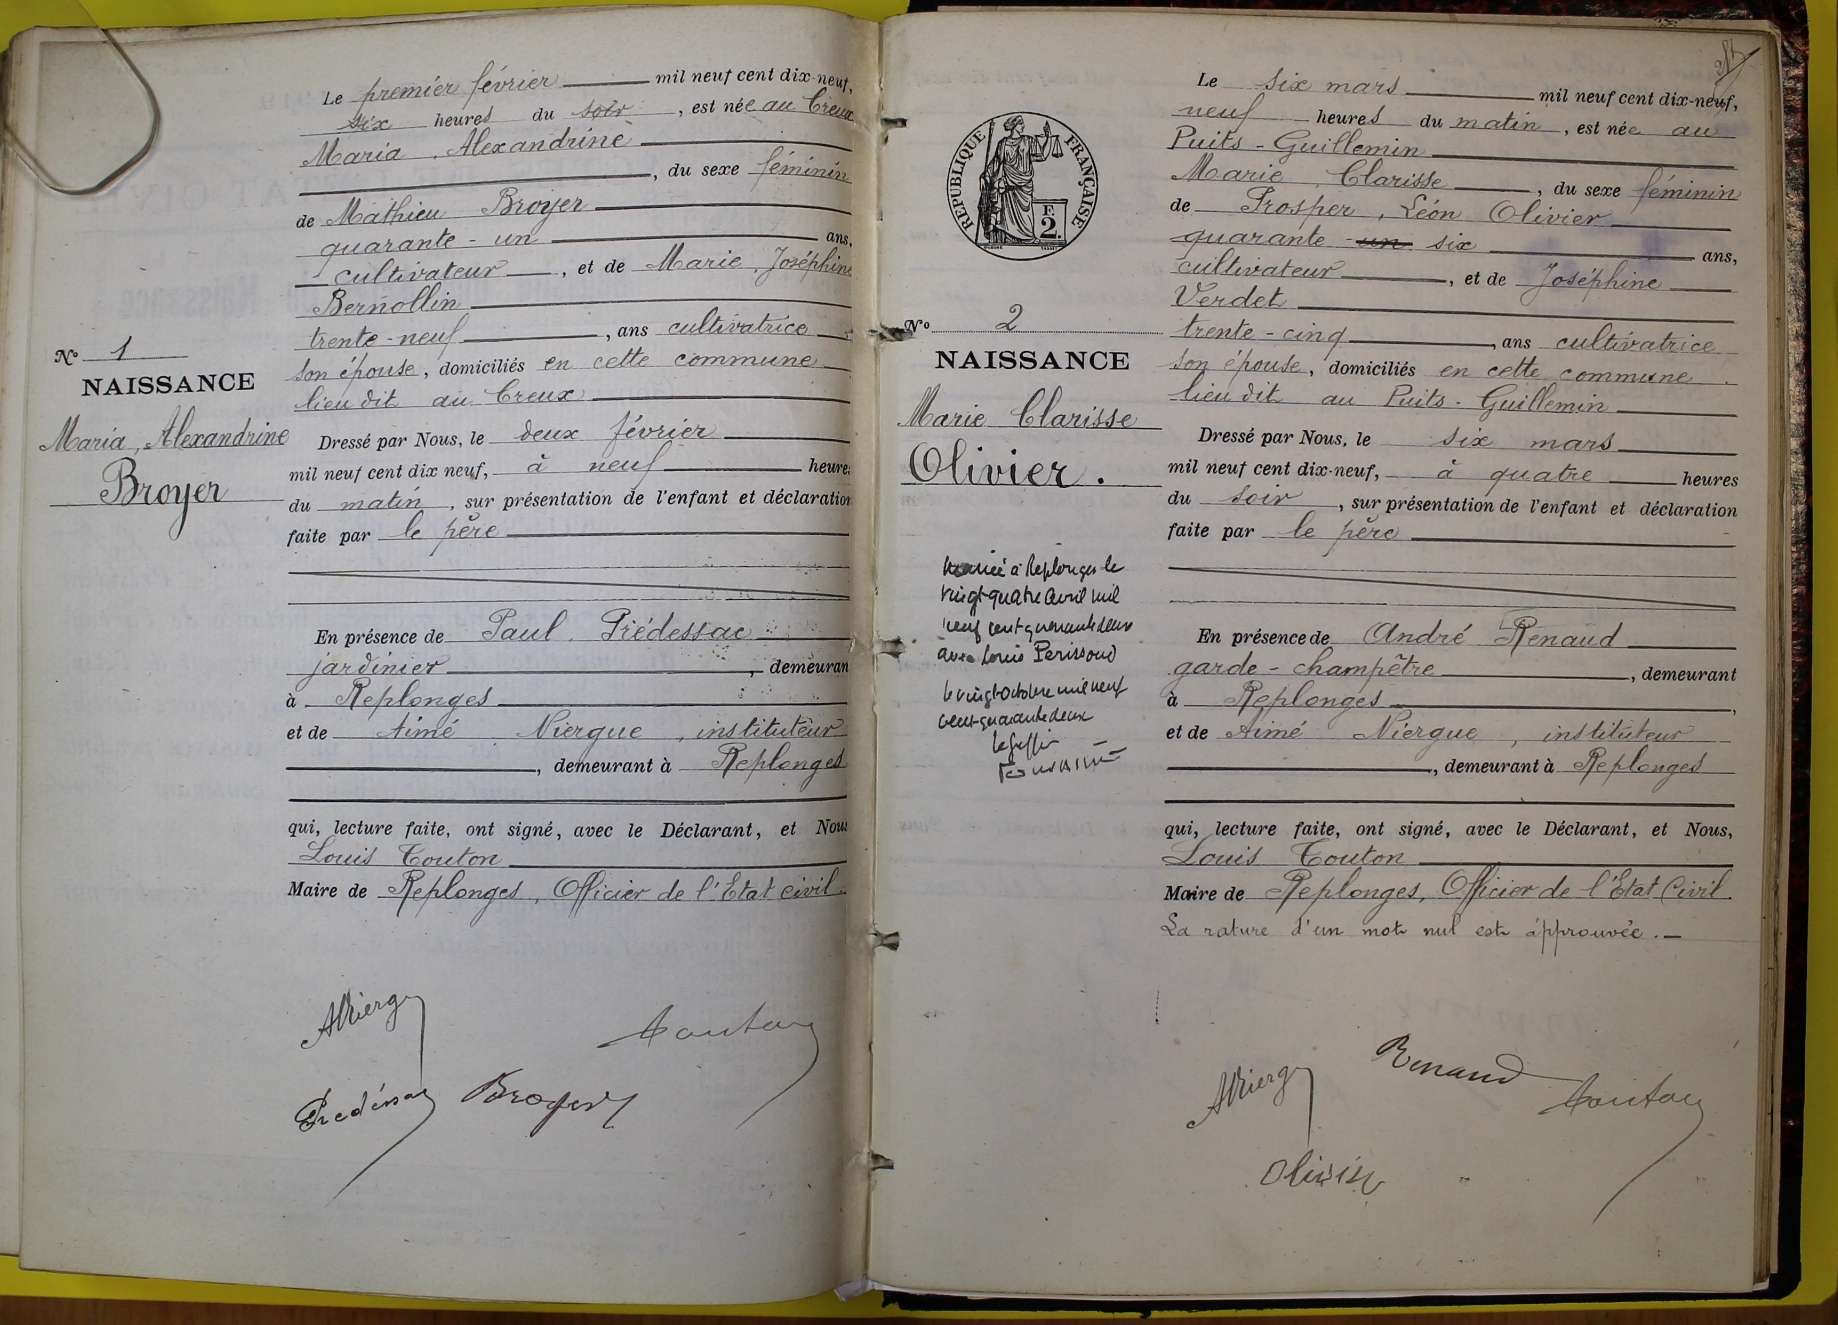 Le premier février mil neuf cent dix-neuf,
six heures du soir, est née au Creux
Maria, Alexandrine
, du sexe féminin
de Mathieu Broyer
quarante-un ans,
cultivateur, et de Marie, Joséphine
Bernollin
trente-neuf, ans cultivatrice
son épouse, domiciliés en cette commune
lieu dit au Creux
N° 1
NAISSANCE
Maria, Alexandrine
Broyer
Dressé par Nous, le deux février
mil neuf cent dix neuf, à neuf heures
du matin, sur présentation de l'enfant et déclaration
faite par le père
En présence de Paul Prédessac
jardinier, demeurant
à Replonges
et de Aimé Niergue, instituteur
, demeurant à Replonges
qui, lecture faite, ont signé, avec le Déclarant, et Nous
Louis Touton
Maire de Replonges, Officier de l'Etat civil.
ANierg
Touton
Prédessac Broyer
RÉPUBLIQUE FRANÇAISE
F.
2.
N° 2
NAISSANCE
Marie Clarisse
Olivier.
mariée à Replonges le
vingt-quatre avril mil
neuf cent quarante deux
avec Louis Perissoud
le vingt octobre mil neuf
cent quarante deux
le greffier
Le six mars mil neuf cent dix-neuf,
neuf heures du matin, est née au
Puits-Guillemin
Marie, Clarisse, du sexe féminin
de Prosper, Léon Olivier
quarante-un six ans,
cultivateur, et de Joséphine
Verdet
trente-cinq, ans cultivatrice
son épouse, domiciliés en cette commune.
lieu dit au Puits-Guillemin
Dressé par Nous, le six mars
mil neuf cent dix-neuf, à quatre heures
du soir, sur présentation de l'enfant et déclaration
faite par le père
En présence de André Renaud
garde-champêtre, demeurant
à Replonges,
et de Aimé Niergue, instituteur
, demeurant à Replonges
qui, lecture faite, ont signé, avec le Déclarant, et Nous,
Louis Touton
Maire de Replonges, Officier de l'Etat Civil.
La rature d'un mot nul est approuvée.
Renaud
ANierg Touton
Olivier